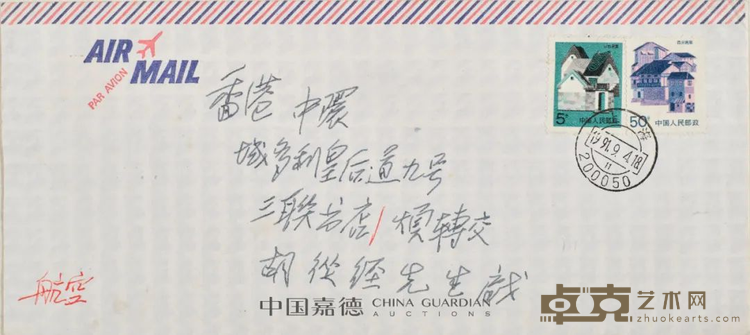 AIR MAIL
PAR AVION
5分 中国人民邮政
50分 中国人民邮政
1991.9.4.18
200050
香港 中環
域多利皇后道九号
三联书店/煩轉交
胡從經先生啟
航空
中国嘉德 CHINA GUARDIAN
AUCTIONS
卓克艺术网
zhuokearts.com